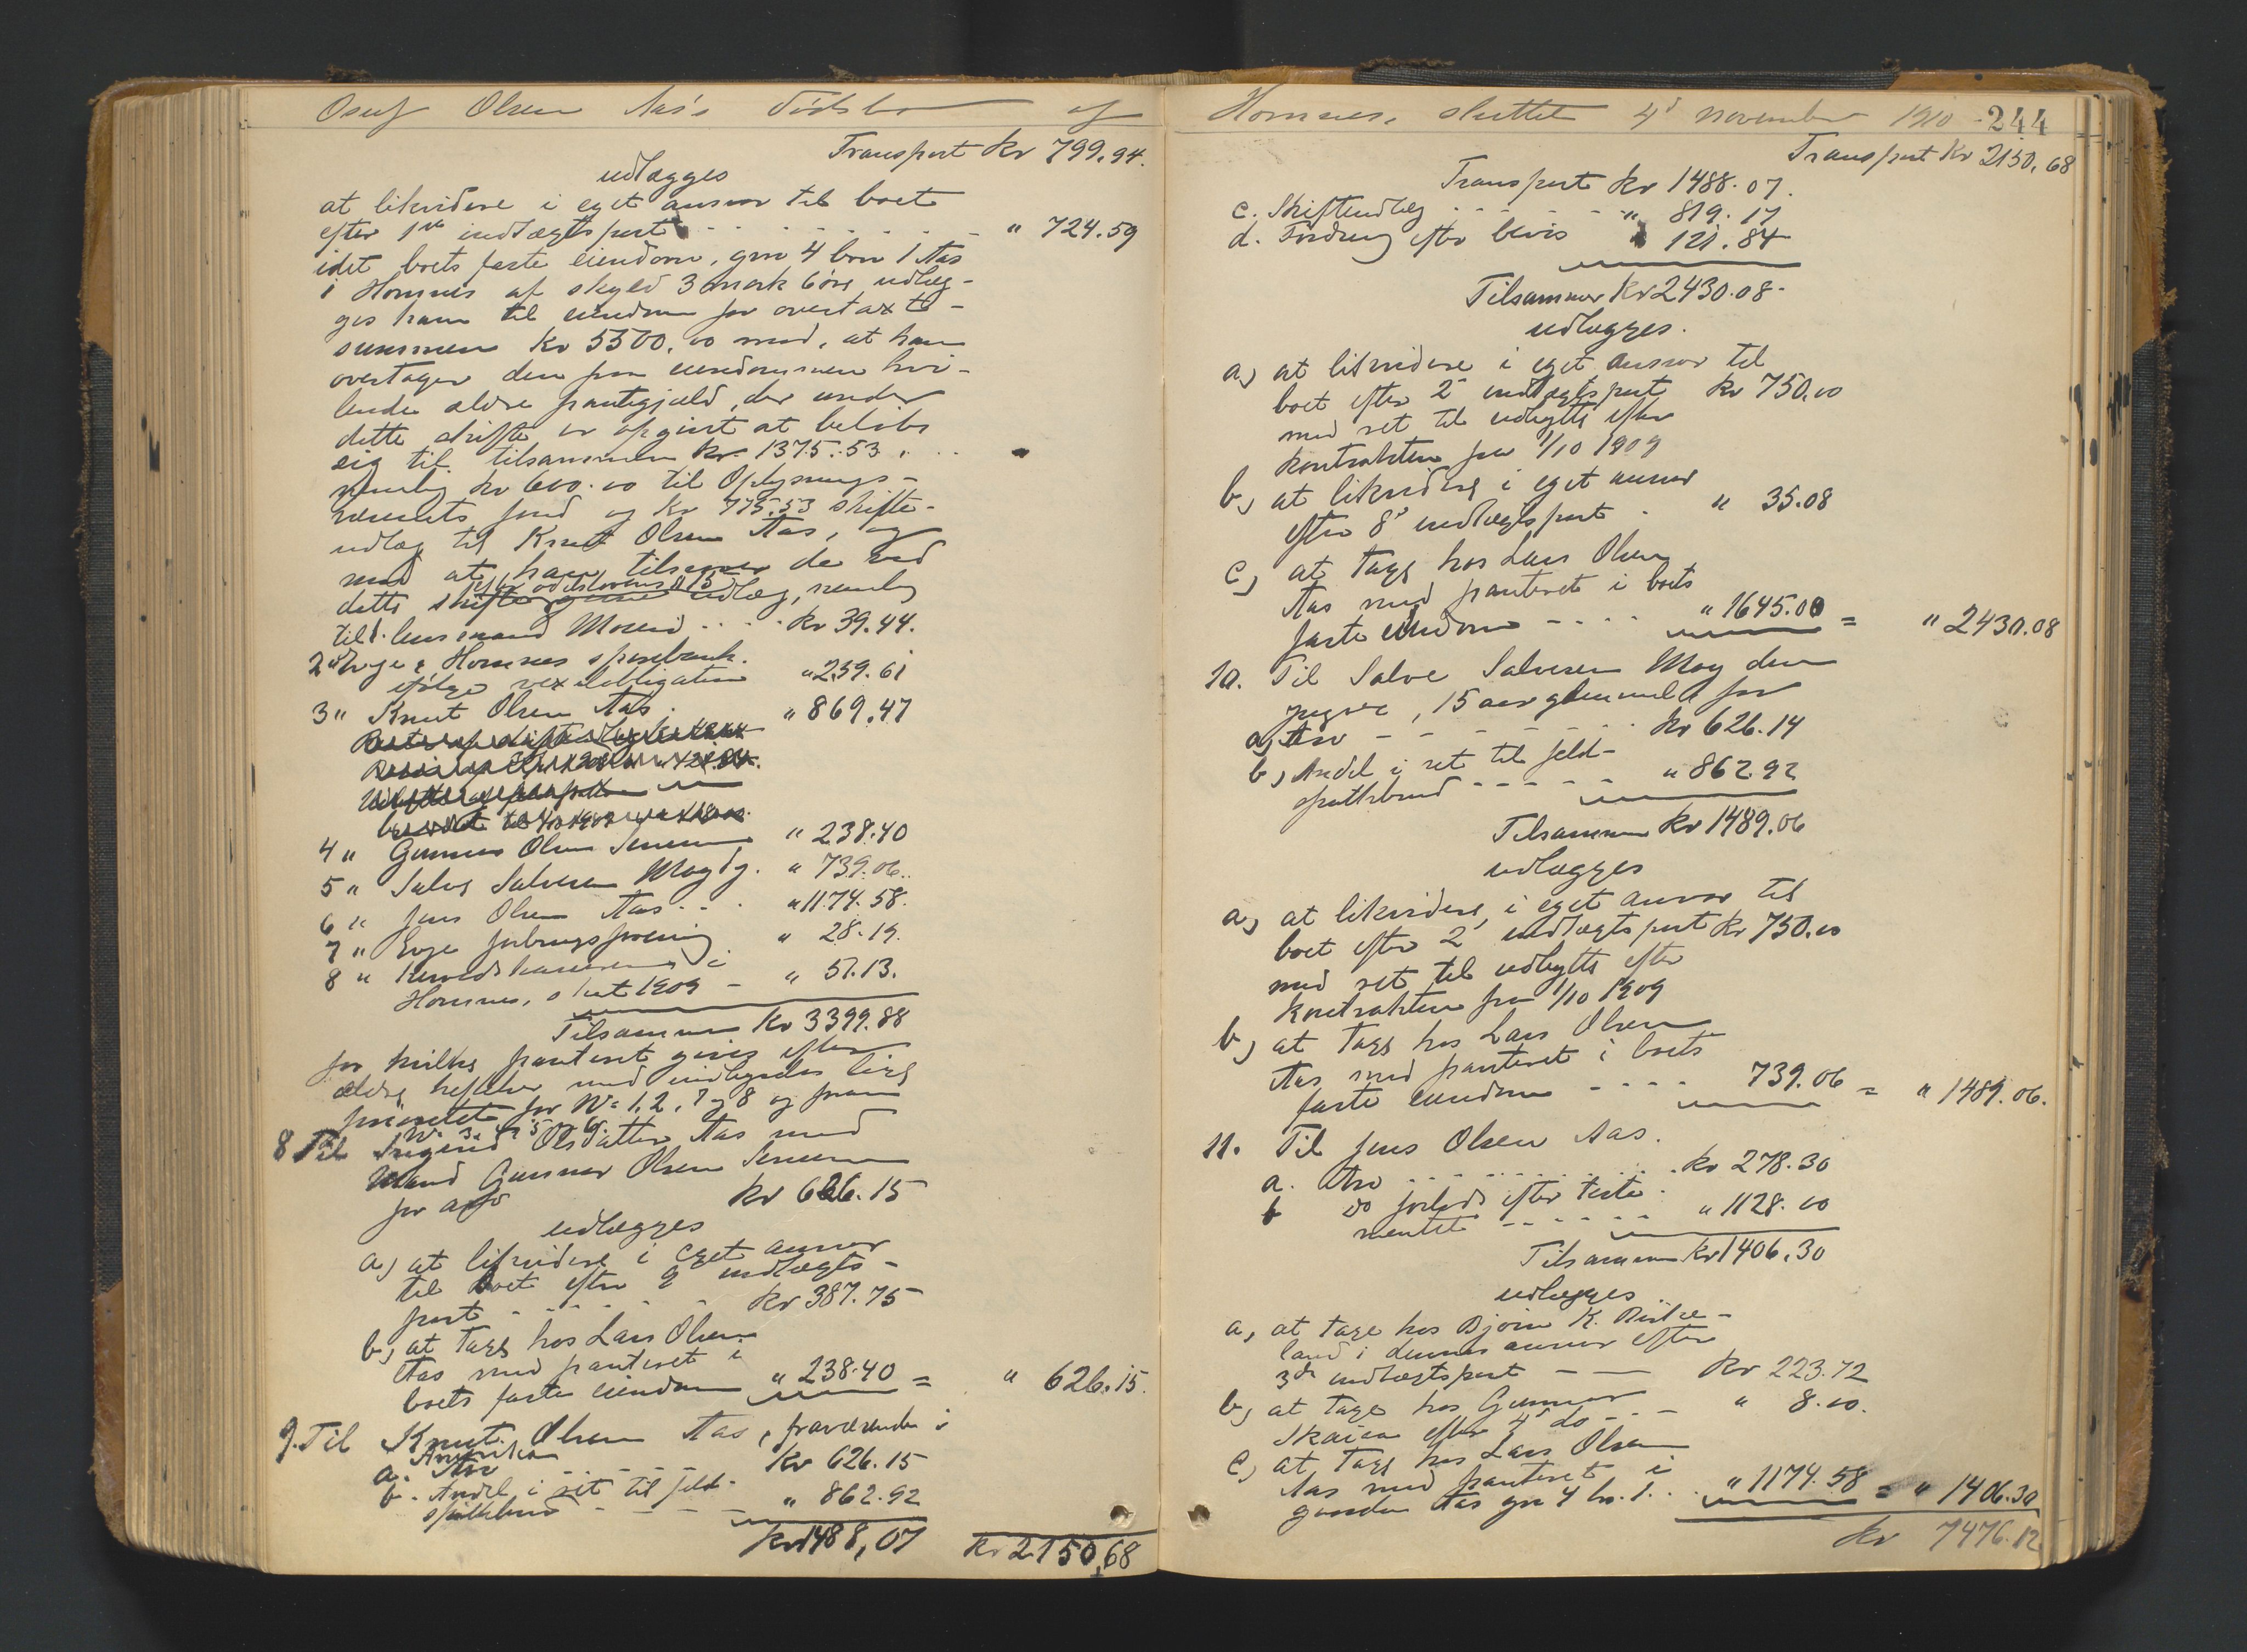 Osuf Olsen Aas's dødsbo af
Transport Kr 799.94.
udlægges
at likvidere i eget ansvar til boet
efter 1ste indtægtspost - - - - - " 724.59
idet boets faste eiendom, gnr 4 brn 1 Aas
i Hornnes af skyld 3 mark 6 øre udlæg-
ges ham til eiendom for overtaxt-
summen Kr 5500.00 mod, at han
overtager den paa eiendommen hvi-
lende ældre pantegjæld, der under
dette skifte er opgjort at beløbe
sig til tilsammen kr 1375.53,
nemlig kr 600.00 til Oplysnings-
væsenets fond og kr 775.53 skifte-
udlæg til Knut Olsen Aas, og
mod at han tilsvarer de ved
efter odelslovens § 15
dette skifte gjorte udlæg, nemlig
til 1. lensmand Moseid - - - Kr 39.44.
2 " Evje & Hornnes sparebank
ifølge vexelobligation " 239.61
3 " Knut Olsen Aas. " 869.47
4 " Gunnar Olsen Senum " 238.40
5 " Salve Salvesen Moy dy. " 739.06.
6 " Jens Olsen Aas - - " 1174.58.
7 " Evje forbrugsforening " 28.19.
8 " Herredskassereren i
Hornnes, skat 1909 - " 51.13.
Tilsammen Kr 3399.88
for hvilke panteret gives efter
ældre heftelser med indbyrdes lige
prioritet for No 1, 2, 7 og 8 og foran
No 3, 4, 5 og 6.
8 Til Sigrid Olsdatter Aas med
Mand Gunnar Olsen Senum
for arv kr 626.15
udlægges
a) at likvidere i eget ansvar
til boet efter 9 indtægts-
post - - - - - kr 387.75
b) at tage hos Lars Olsen
Aas med panteret i
boets faste eiendom " 238.40 = " 626.15.
9. Til Knut Olsen Aas, fraværende i
Amerika
a. Arv - - - - - Kr 626.15
b. Andel i ret til feld-
spathbrud - - - " 862.92
kr 1488,07 Kr 2150,68
Hornnes, sluttet 4d november 1910 - 244
Transport Kr 2150,68
Transport Kr 1488.07.
c. Skifteudlæg - - - - " 819.17
d. Fordring efter bevis " 121.84
Tilsammen Kr 2430.08.
udlægges.
a) at likvidere i eget ansvar til
boet efter 2 indtægtspost kr 750.00
med ret til udbytte efter
kontrakten fra 1/10 1909
b) at likvidere i eget ansvar
efter 8d indtægtspost - " 35.08
c) at tage hos Lars Olsen
Aas med panteret i boets
faste eiendom - - - - " 1645.00 = " 2430.08
10. Til Salve Salvesen Moy den
yngre, 15 aar gammel for
a) Arv - - - - - kr 626.14
b) Andel i ret til feld-
spathbrud - - - - " 862.92
Tilsammen Kr 1489.06
udlægges
a) at likvidere i eget ansvar til
boet efter 2 indtægtspost kr 750.00
med ret til udbytte efter
kontrakten fra 1/10 1909
b) at tage hos Lars Olsen
Aas med panteret i boets
faste eiendom - - - - 739.06 = " 1489.06.
11. Til Jens Olsen Aas.
a. Arv - - - - - - - kr 278.30
b do forlods efter testa-
mentet - - - - - - " 1128.00
Tilsammen kr 1406.30
udlægges
a) at tage hos Bjørn K. -
land i dennes ansvar efter
3de indtægtspost - - Kr 223.72
b) at tage hos Gunnar
efter 4d do - - - " 8.00.
c) at tage hos Lars Olsen
Aas med panteret i
gaarden Aas gnr 4 br. 1. . . " 1174.58 = " 1406.30
kr 7476.12